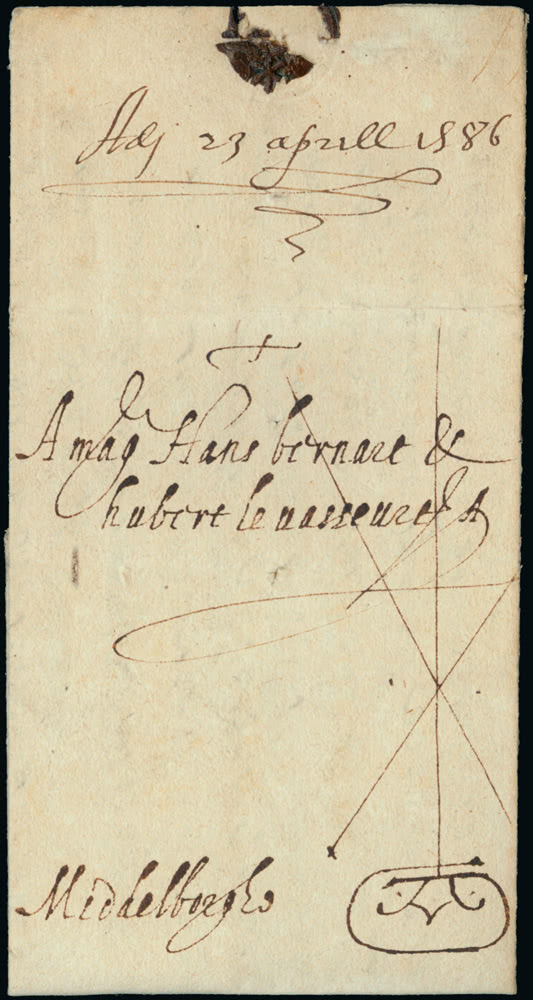 Adj 23 aprill 1586
A mag Hans bernart &
hubert le vasseur
Middelborgho